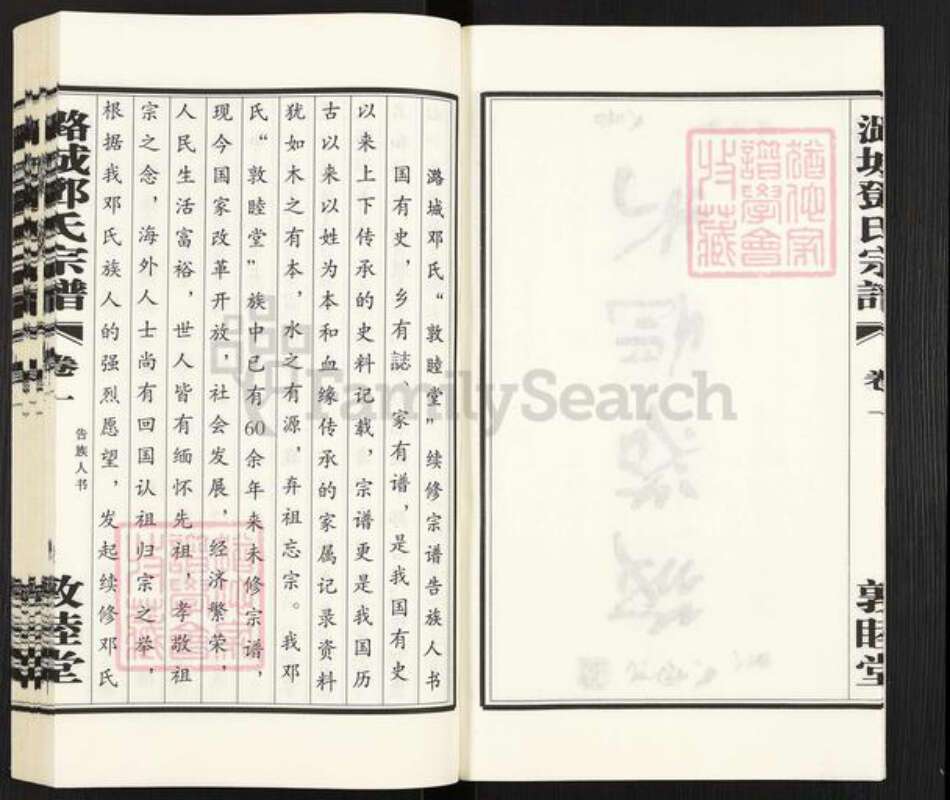 潞城鄧氏宗譜
卷一
敦睦堂
猶他家
譜學會
收藏
潞城邓氏“敦睦堂”续修宗谱告族人书
国有史，乡有誌、家有谱，是我国有史
以来上下传承的史料记载，宗谱更是我国历
古以来以姓为本和血缘传承的家属记录资料
犹如木之有本，水之有源，弃祖忘宗。我邓
氏“敦睦堂”族中已有60余年来未修宗谱，
现今国家改革开放，社会发展，经济繁荣，
人民生活富裕，世人皆有缅怀先祖，孝敬祖
宗之念，海外人士尚有回国认祖归宗之举，
根据我邓氏族人的强烈愿望，发起续修邓氏
告族人书
潞城邓氏宗谱
卷一
敦睦堂
FamilySearch